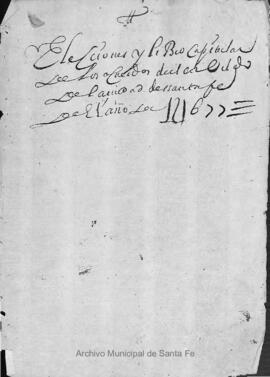 Elecciones y libro capitular
de los acuerdos del cavildo
de la ciudad de santa fe
de el año de 1677
Archivo Municipal de Santa Fe